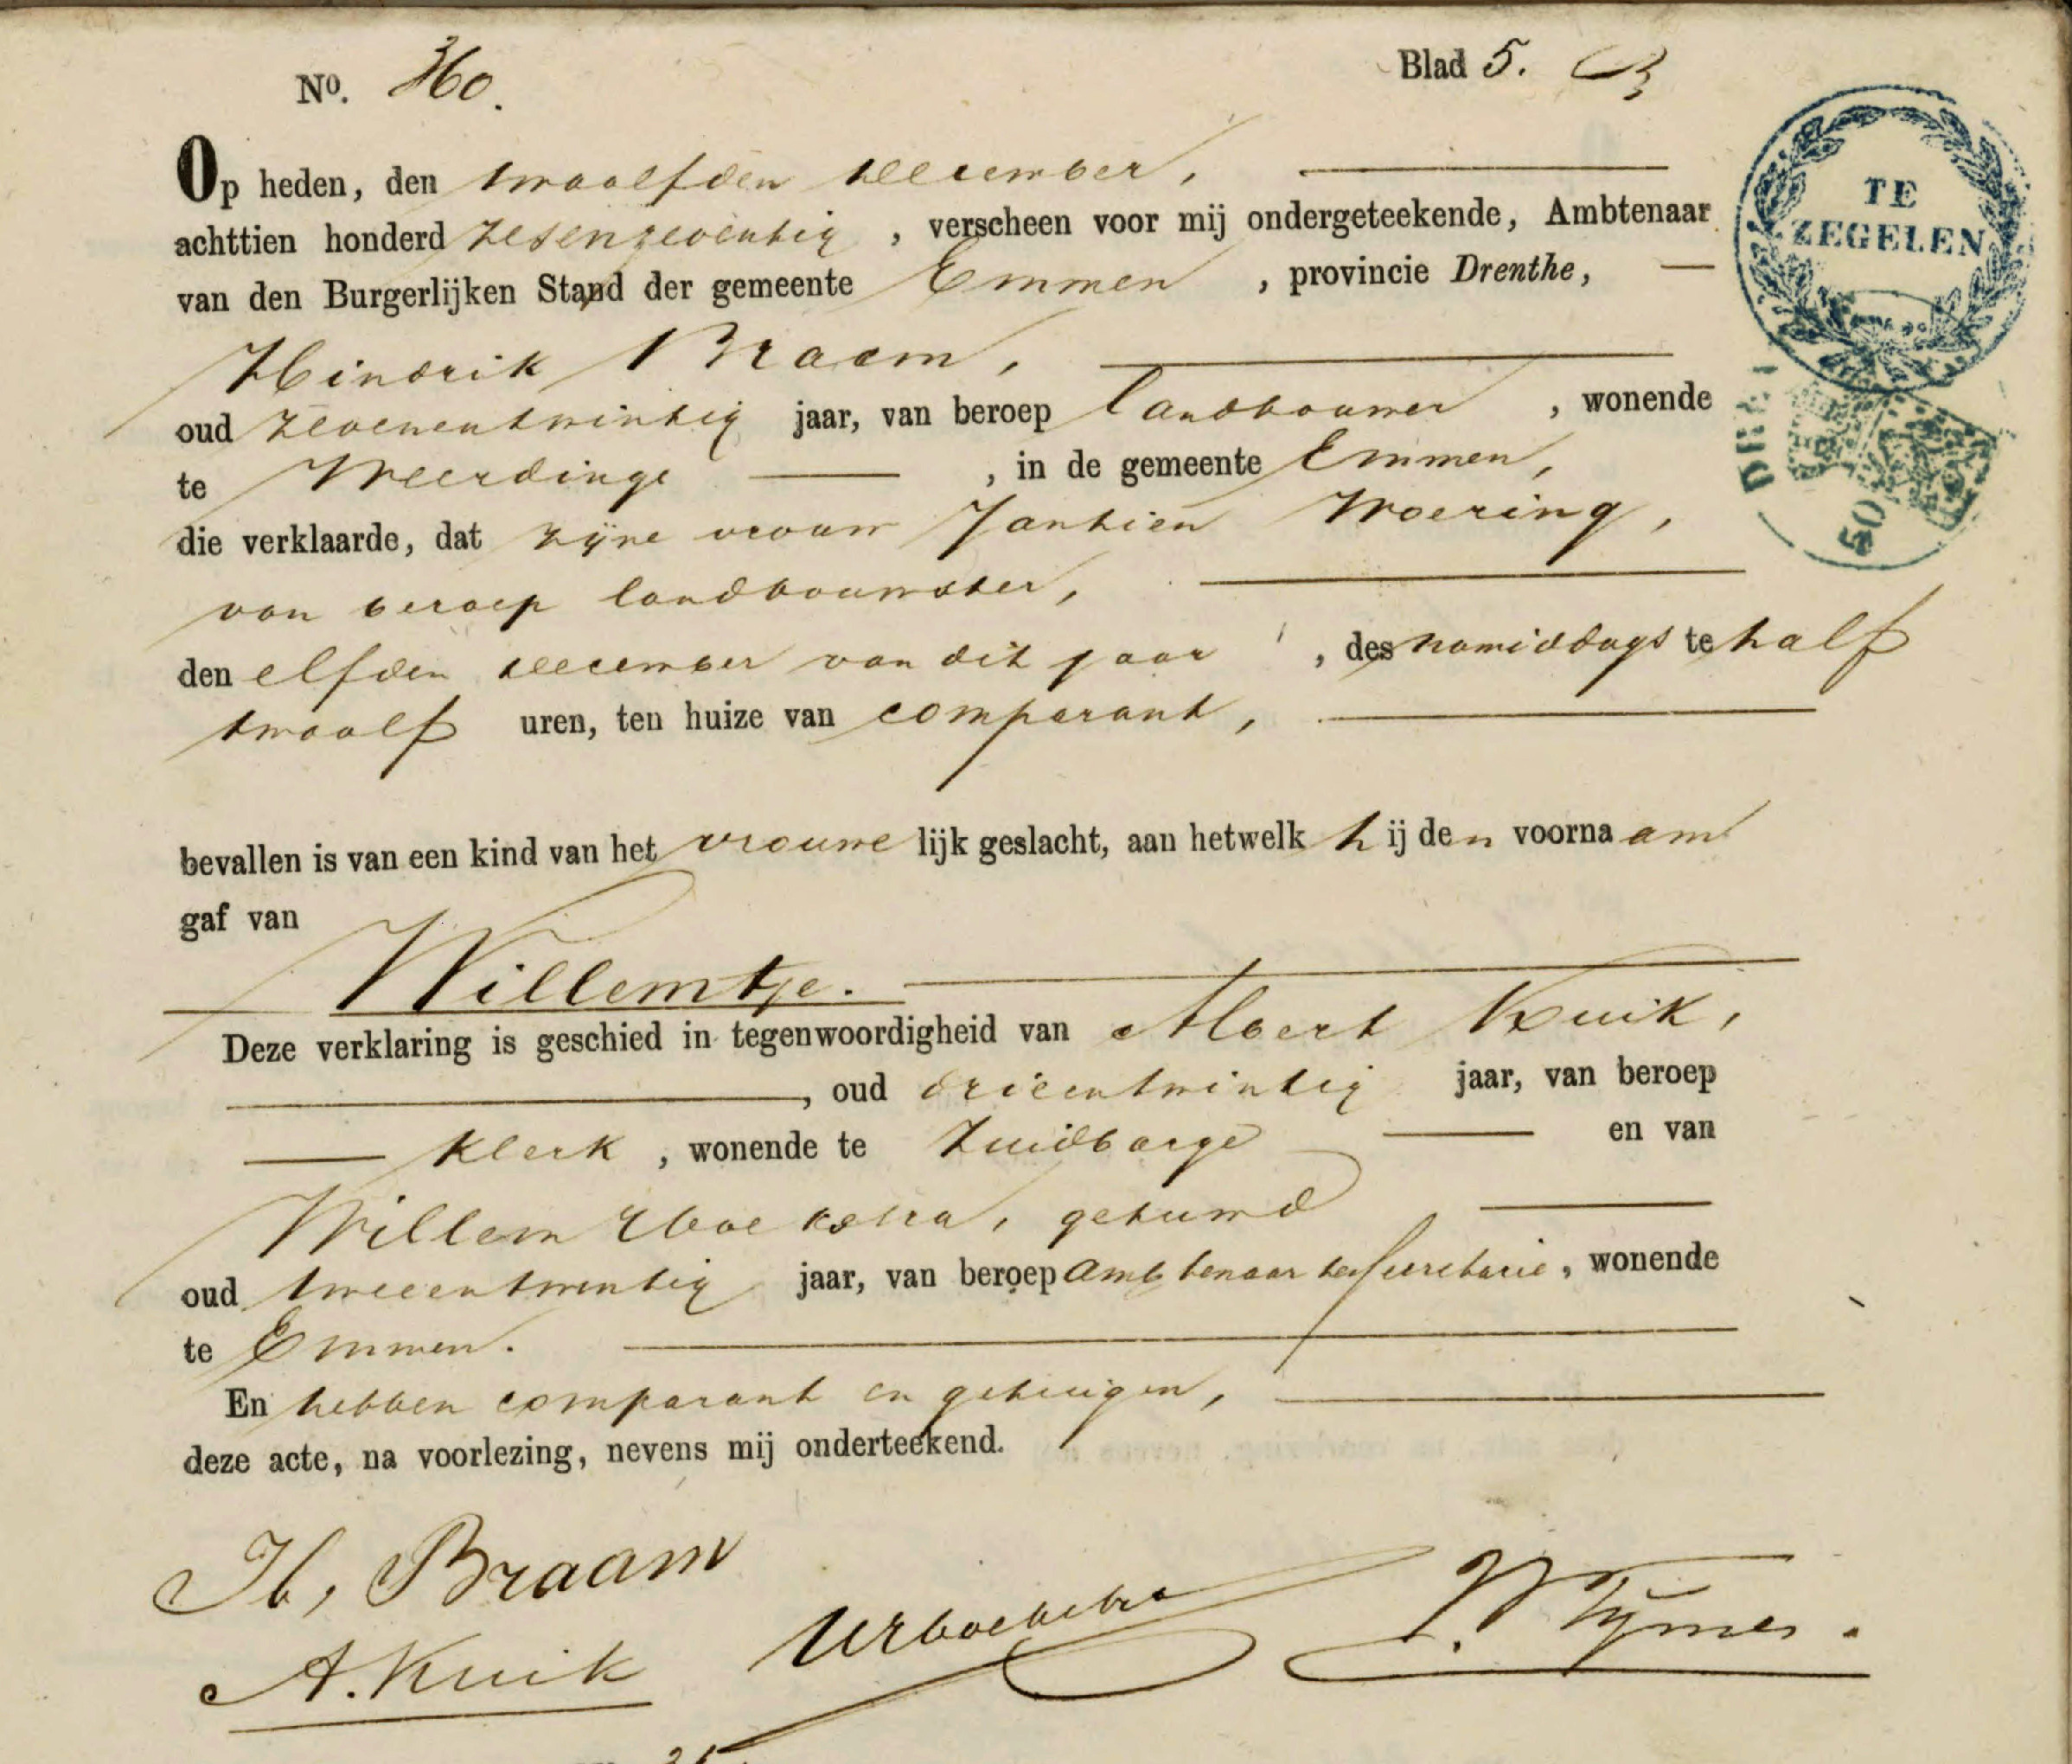 No. 360.
Blad 5.
Op heden, den twaalfden december,
achttien honderd zesenzeventig, verscheen voor mij ondergeteekende, Ambtenaar
van den Burgerlijken Stand der gemeente Emmen, provincie Drenthe,
Hindrik Braam,
oud zevenentwintig jaar, van beroep landbouwer, wonende
te Weerdinge, in de gemeente Emmen,
die verklaarde, dat zijne vrouw Jantien Woering,
van beroep landbouwster,
den elfden december van dit jaar, des namiddags te half
twaalf uren, ten huize van comparant,
bevallen is van een kind van het vrouwelijk geslacht, aan hetwelk hij den voornaam
gaf van
Willemtje.
Deze verklaring is geschied in tegenwoordigheid van Albert Kuik,
, oud drieentwintig jaar, van beroep
klerk, wonende te Zuidbarge en van
Willem Hoekstra, gehuwd
oud tweeentwintig jaar, van beroep ambtenaar ter secretarie, wonende
te Emmen.
En hebben comparant en getuigen,
deze acte, na voorlezing, nevens mij onderteekend.
H, Braam
A. Kuik
WHoekstra
TE
ZEGELEN
50